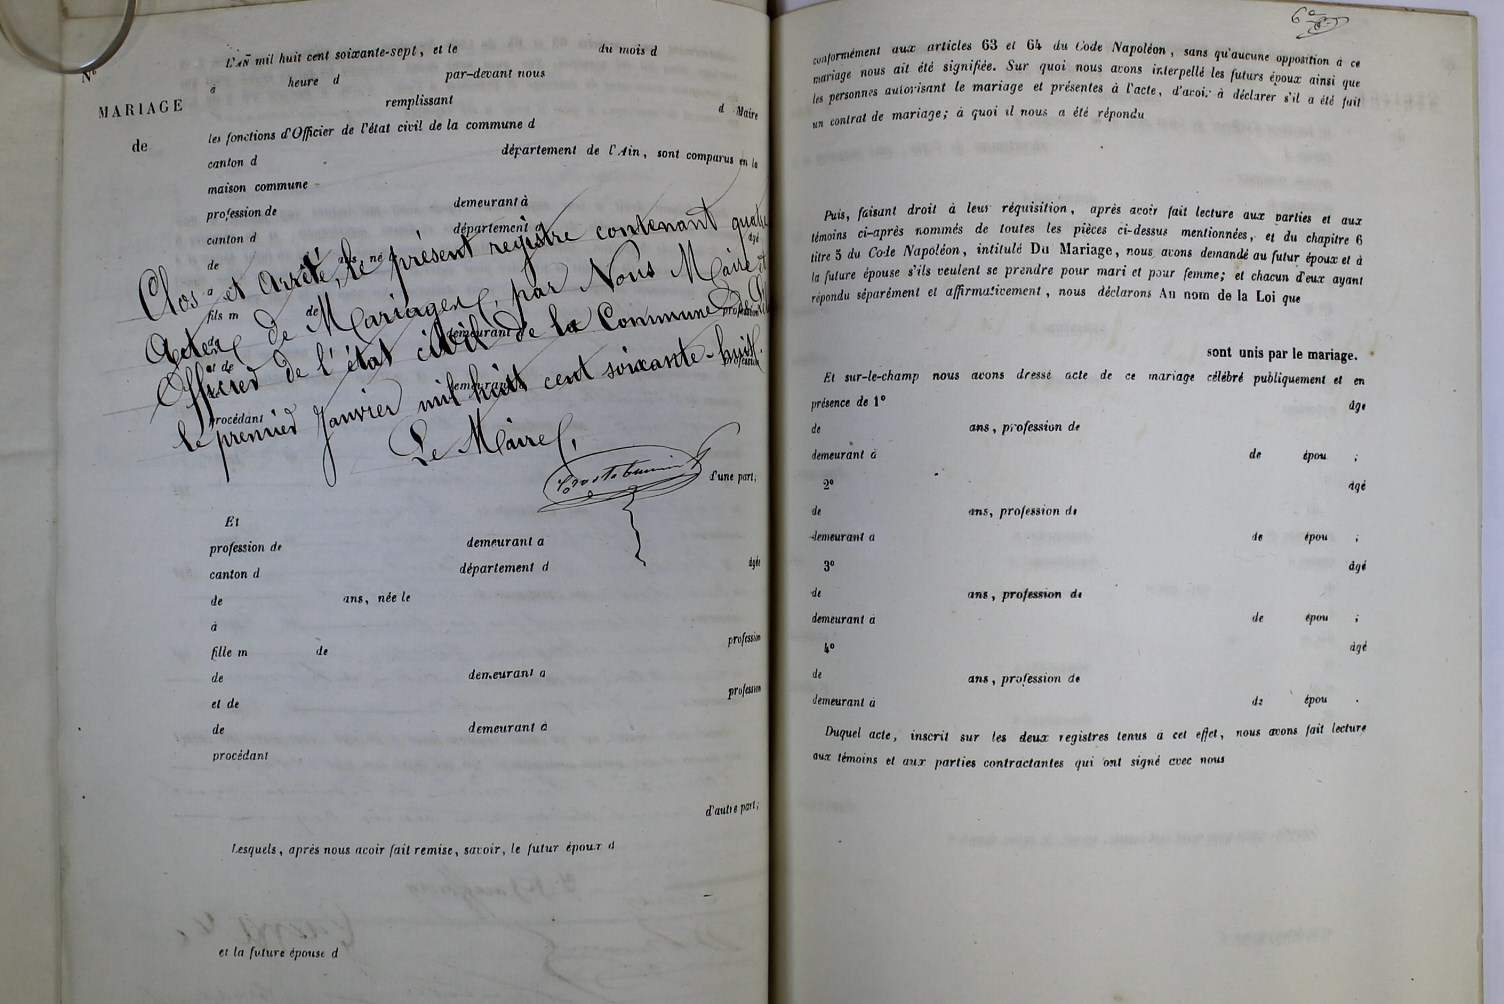 Nº
MARIAGE
de
L'AN mil huit cent soixante-sept, et le du mois d
à heure d par-devant nous
remplissant d Maire
les fonctions d'Officier de l'état civil de la commune d
canton d département de l'Ain, sont comparus en la
maison commune
profession de demeurant à
canton d département d
âgé
de ans, né le
à
fils m de
profession
de demeurant à
et de
profession
demeurant
procédant
Clos et Arrêté, le présent registre contenant quatre
Actes de Mariages, par Nous Maire et
Officier de l'état civil de la Commune de
le premier Janvier mil huit cent soixante-huit.
Le Maire,
d'une part;
Et
profession de demeurant a
canton d département d
âgée
de ans, née le
à
fille m de profession
de demeurant a
et de profession
de demeurant à
procédant
d'autre part;
Lesquels, après nous avoir fait remise, savoir, le futur époux d
et la future épouse d
6e
conformément aux articles 63 et 64 du Code Napoléon, sans qu'aucune opposition à ce
mariage nous ait été signifiée. Sur quoi nous avons interpellé les futurs époux ainsi que
les personnes autorisant le mariage et présentes à l'acte, d'avoir à déclarer s'il a été fait
un contrat de mariage; à quoi il nous a été répondu
Puis, faisant droit à leur réquisition, après avoir fait lecture aux parties et aux
témoins ci-après nommés de toutes les pièces ci-dessus mentionnées, et du chapitre 6
titre 5 du Code Napoléon, intitulé Du Mariage, nous avons demandé au futur époux et à
la future épouse s'ils veulent se prendre pour mari et pour femme; et chacun d'eux ayant
répondu séparément et affirmativement, nous déclarons Au nom de la Loi que
sont unis par le mariage.
Et sur-le-champ nous avons dressé acte de ce mariage célébré publiquement et en
présence de 1º âgé
de ans, profession de
demeurant à de épou ;
2º âgé
de ans, profession de
demeurant a de épou ;
3º âgé
de ans, profession de
demeurant à de épou ;
4º âgé
de ans, profession de
demeurant à de épou .
Duquel acte, inscrit sur les deux registres tenus à cet effet, nous avons fait lecture
aux témoins et aux parties contractantes qui ont signé avec nous